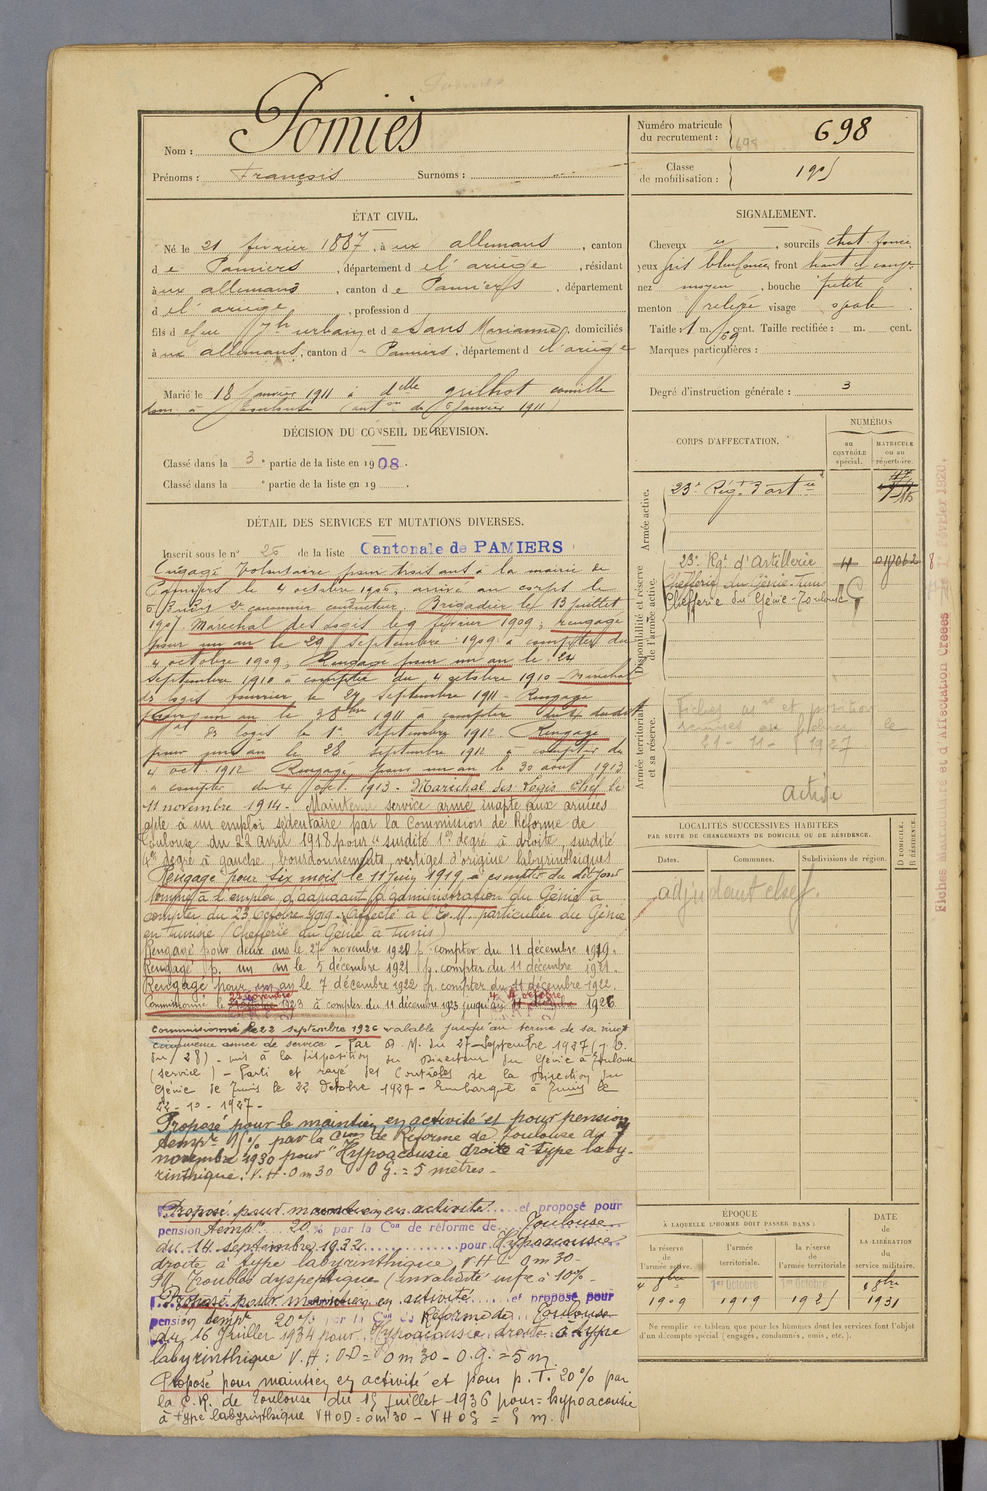 Nom : Pomiès
Prénoms : François Surnoms :
Numéro matricule du recrutement : 698
698
Classe de mobilisation : 1905
ÉTAT CIVIL.
Né le 21 février 1887, à ux allemans, canton
de Pamiers, département de l'ariège, résidant
à ux allemans, canton de Pamiers, département
de l'ariège, profession d
fils de feu Jph urbain et de Sans Marianne, domiciliés
à ux allemans, canton d Pamiers, département de l'ariège
Marié le 18 Janvier 1911 à dlle grilhot camille
dom. à Toulouse (auton du 5 Janvier 1911)
SIGNALEMENT.
Cheveux , sourcils chat. foncé
yeux gris bleu foncé, front haut
nez moyen, bouche petite
menton relevé visage ovale
Taille : 1 m. 69 cent. Taille rectifiée : m. cent.
Marques particulières :
Degré d'instruction générale : 3
DÉCISION DU CONSEIL DE REVISION.
Classé dans la 3e partie de la liste en 1908.
Classé dans la e partie de la liste en 19 .
DÉTAIL DES SERVICES ET MUTATIONS DIVERSES.
Inscrit sous le n° 26 de la liste Cantonale de PAMIERS
Engagé Volontaire pour trois ans à la mairie de
Pamiers le 4 octobre 1906, arrivé au corps le
2e canonnier conducteur, Brigadier le 13 juillet
1907. Maréchal des logis le 9 février 1909; rengagé
pour un an le 29 septembre 1909 à compter du
4 octobre 1909; Rengagé pour un an le 24
septembre 1910 à compter du 4 octobre 1910 - Maréchal
des logis fourrier le 24 septembre 1911 - Rengagé
pour un an le 1911 à compter du 4 dudit
des logis le 1er septembre 1912 Rengagé
pour un an le 28 septembre 1912 à compter du
4 oct. 1912 Rengagé pour un an le 30 août 1913
à compter du 4 oct. 1913 - Maréchal des Logis Chef le
11 novembre 1914 - Maintenu service armé inapte aux armées
apte à un emploi sédentaire par la Commission de Réforme de
Toulouse du 22 avril 1918 pour "surdité 1er degré à droite, surdité
degré à gauche, bourdonnements, vertiges d'origine labyrinthiques
Rengagé pour six mois le 11 juin 1919, à compter du dit jour
Nommé à l'emploi d'adjudant d'administration du Génie à
compter du 23 octobre 1919. (Affecté à l'E. M. particulier du Génie
en Tunisie (Chefferie du Génie à Tunis)
Rengagé pour deux ans le 27 novembre 1920 p. compter du 11 décembre 1919.
Rengagé p. un an le 5 décembre 1921 p. compter du 11 décembre 1921.
Rengagé pour un an le 7 décembre 1922 p. compter du 11 décembre 1922.
Commissionné le 22 novembre 1923 à compter du 11 décembre 1923 jusqu'au 4 octobre 1926
Commissionné le 22 septembre 1926 valable jusqu'au terme de sa vingt
cinquième année de service - Par D. M. du 27 Septembre 1927 (J. O.
du 28) - mis à la disposition du Directeur du Génie à Toulouse
(service) - Parti et rayé des Contrôles de la Direction du
Génie de Tunis le 22 Octobre 1927 - Embarqué à Tunis le
22 - 10 - 1927 -
Proposé pour le maintien en activité et pour pension
tempre 15% par la Con de Réforme de Toulouse du 7
novembre 1930 pour "Hypoacousie droite à type laby-
rinthique. V. H. 0m30 - O G. = 5 mètres -
Proposé pour maintien en activité et proposé pour
pension tempre 20 % par la Con de réforme de Toulouse
du 14 septembre 1932 pour Hypoacousie
droite à type labyrinthique, VH = 0m30 -
Troubles dyspeptique (invalidité infre à 10% -
Proposé pour maintien en activité et proposé pour
pension tempre 20% par la Con de Réforme de Toulouse
du 16 Juillet 1934 pour Hypoacousie droite à type
labyrinthique V. H : O.D = 0m30 - O.G. = 5 m.
Proposé pour maintien en activité et pour p. T. 20% par
la C. R. de Toulouse du 15 juillet 1936 pour = hypoacousie
à type labyrinthique VHOD = 0m30 - VHOG = 5 m.
CORPS D'AFFECTATION.
NUMÉROS
au CONTRÔLE spécial.
MATRICULE ou au répertoire.
Armée active.
23e Régt d'artie
Disponibilité et réserve de l'armée active.
23e Rgt d'Artillerie 4 019062
Chefferie du Génie-Tunis
Chefferie du Génie-Toulouse
Armée territoriale et sa réserve.
Fiches et position
le
21 - 11 - 1927
Active
Fiches Matriculaire et d'Affectation Créées le Février 1920.
8
LOCALITÉS SUCCESSIVES HABITÉES
PAR SUITE DE CHANGEMENTS DE DOMICILE OU DE RÉSIDENCE.
Dates. Communes. Subdivisions de région. D DOMICILE. R RÉSIDENCE.
adjudant chef.
ÉPOQUE
À LAQUELLE L'HOMME DOIT PASSER DANS :
la réserve de l'armée active.
l'armée territoriale.
la réserve de l'armée territoriale
DATE de LA LIBÉRATION du service militaire.
4 8bre 1909
1er Octobre 1919
1er Octobre 1925
8bre 1931
Ne remplir ce tableau que pour les hommes dont les services font l'objet
d'un décompte spécial (engagés, condamnés, omis, etc.).